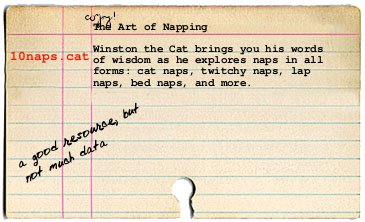 copy!
The Art of Napping
10naps.cat
Winston the Cat brings you his words
of wisdom as he explores naps in all
forms: cat naps, twitchy naps, lap
naps, bed naps, and more.
a good resource, but
not much data